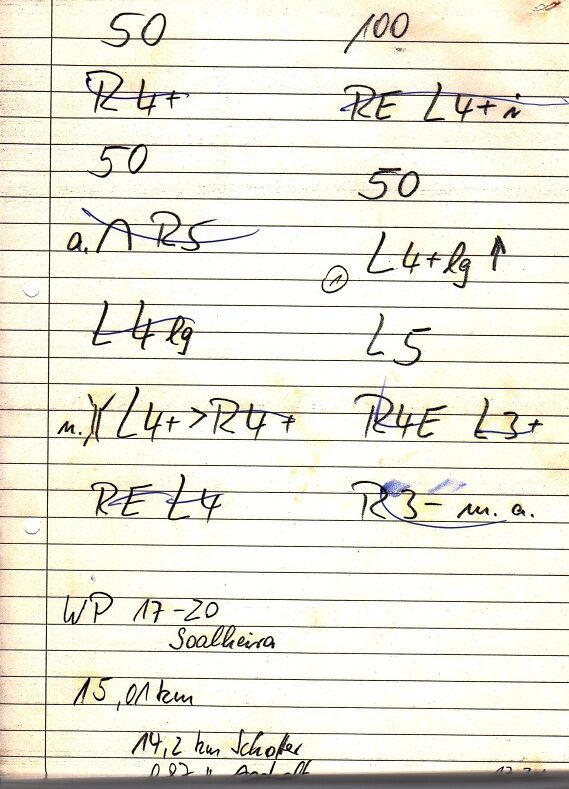 50
R4+
50
a. ∩ R5
L4 lg
m. )( L4+ > R4+
RE L4
100
RE L4+ i
50
L4+ lg ↑
1
L5
R4E L3+
R3- m. a.
WP 17-20
Soalheira
15,01 km
14,2 km Schotter
0,87 " Asphalt